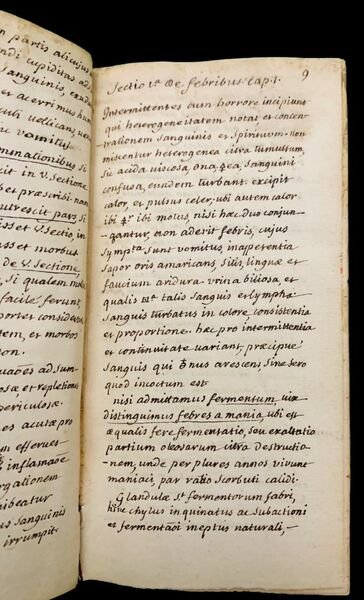 n partis alicujus
ndi cupiditas ad
Sanguinis, exude
et acerrimus hum
culi uellicant, uen
ac vomitus
mnationibus si
cit in V. Sectione
et præscribi nam
utrescit pars, si
isset V Sectio, in
asset morbus
de V. Sectione
, si qualem mate
facile, ferunt,
portet considerand
et, et morbos
non.
uaões ad sum-
iosæ, et repletionis
periculosæ.
es acutæ pro
m efferues
d inflamaõe
rgationem
hibeatur
us sanguinis
irrumpit:
Sectio 1.ª De febribus Cap. I. 9
Intermittentes cum horrore incipiunt
qui heterogeneitatem notat et concen-
trationem sanguinis et spirituum. non
miscentur heterogenea citra tumultum,
Su acida, uiscosa, ona, ea, sanguini
confusa, eundem turbant. excipit
calor, et pulsus celer. ubi autem calor
ibi motus, nisi hæc duo conjun-
gantur, non aderit febris, cujus
sympta sunt vomitus, inappetentia
sapor oris amaricans, sitis, linguæ et
faucium aridura. vrina biliosa, et
qualis talis sanguis et lympha
sanguis turbatus in colore, consistentia
et proportione. hæc pro intermittentia
et continuitate uariant, præcipue
sanguis qui arescens, sine sero
quod incoctum est.
nisi admittamus fermentum, uix
distinguimus febres a mania, ubi est
æqualis fere fermentatio, seu exaltatio
partium oleosarum citra destructio-
nem, unde per plures annos vivunt
maniaci, par ratio scorbuti calidi.
Glandulæ St fermentorum fabri,
hinc chylus inquinatus ac subactioni
et fermentaõi ineptus naturali, —